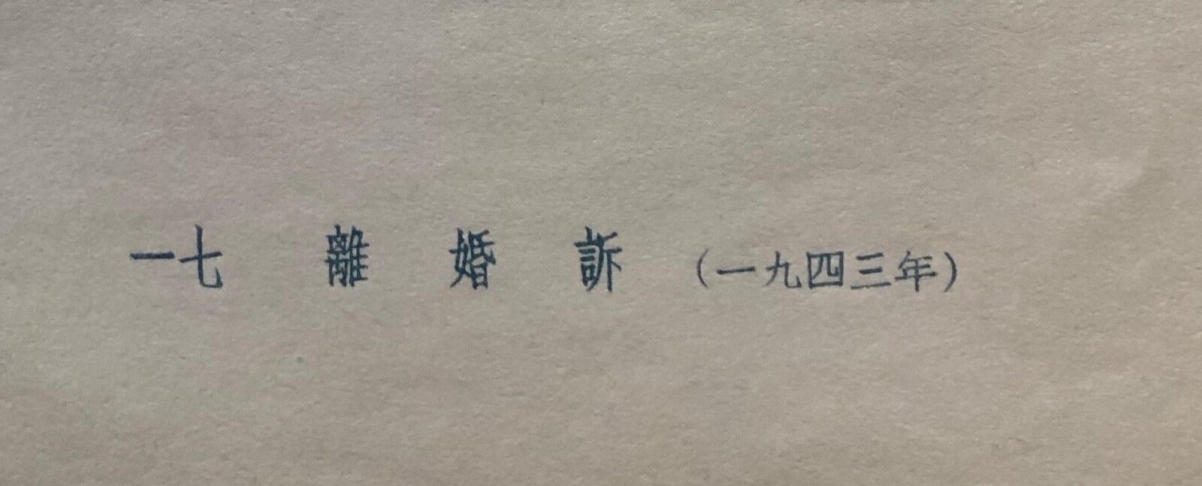 一七 離婚訴 (一九四三年)